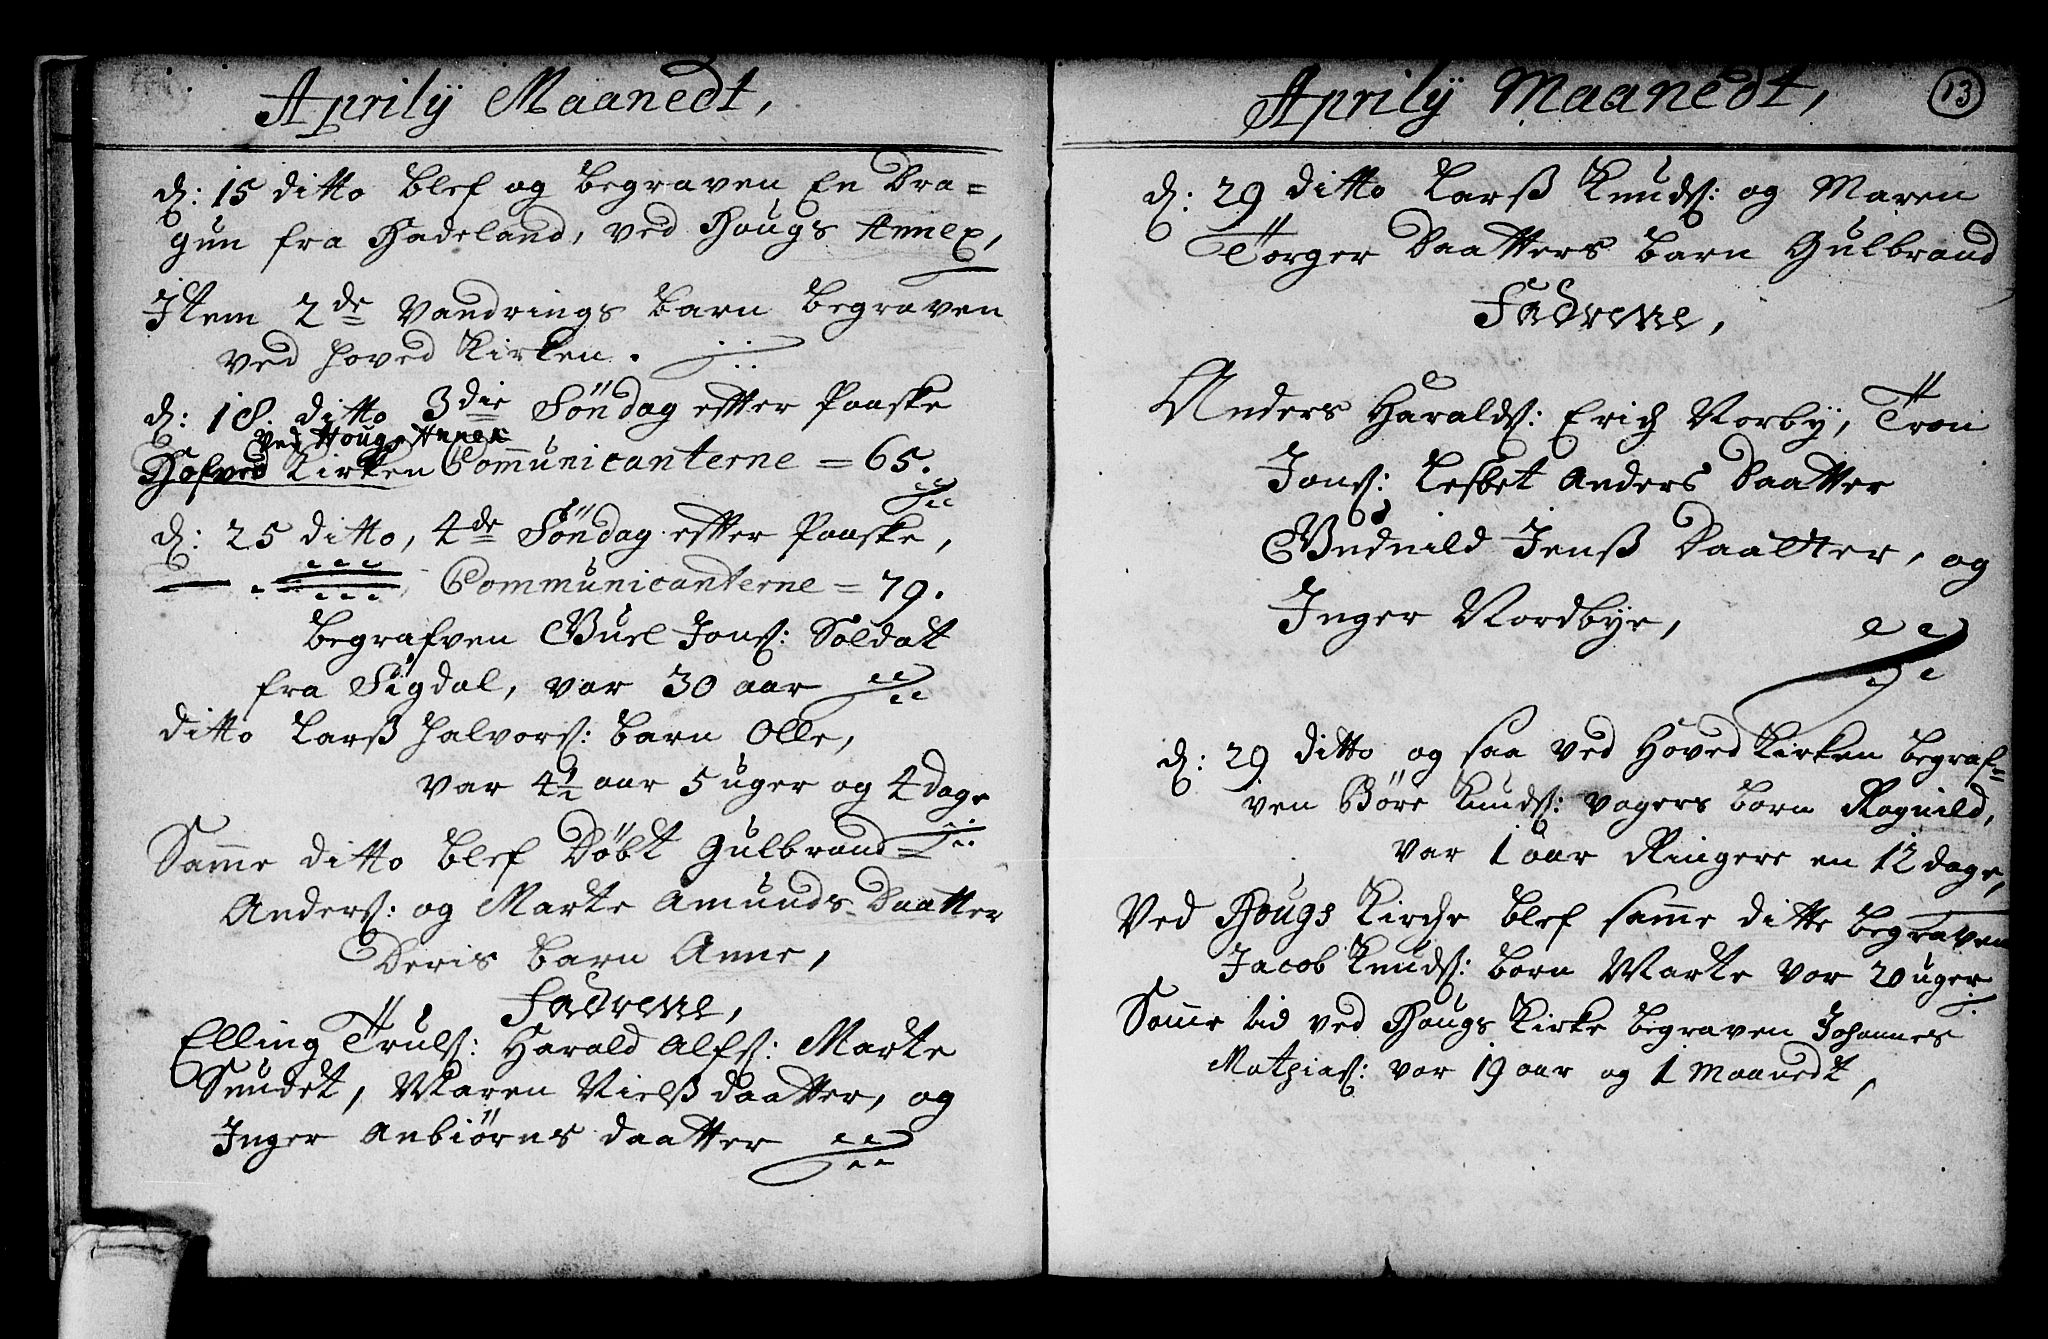 Aprilÿ Maanedt,
d: 15 ditto blef og begraven En Dra=
gun fra Hadeland, ved Hougs Annex,
Item 2de Vandrings barn begraven
ved hoved Kirken.
d: 18. ditto 3die Söndag effter Paaske
ved Hougs Annex
Hofved Kirken Communicanterne = 65.
d: 25 ditto, 4de Söndag effter Paaske,
Communicanterne = 79.
begrafven Gu̇el Jonss: Soldat
fra Sigdal, var 30 aar
ditto Larss Halvorss: barn Olle,
var 4½ aar 5 uger og 4 dage
Samme ditto blef Döbt Gulbrand
Anderss: og Marte Amunds Daatter
Deris barn Anne,
Fadrene,
Elling Trulss: Harald Alfss: Marte
Sundet, Maren Nielss daatter, og
Inger Anbiörns daatter
Aprilÿ Maanedt, 13
d: 29 ditto Larss Knudss: og Maren
Torger Daatters barn Gulbrand
Fadrene,
Anders Haraldss: Erich Norby, Tron
Jonss: Lesbet Anders Daatter
Gudnild Jenss Daatter, og
Inger Nordbye,
d: 29 ditto og saa ved Hoved Kirken begraf=
ven Böre Knudss: vagers barn Ragnild,
var 1 aar Ringere en 12 dage,
Ved Hougs Kirche blef samme ditte begraven
Jacob Knudss: barn Marte var 20 uger
Samme tid ved Hougs Kirke begraven Johannes
Mathiass: var 19 aar og 1 Maanedt,